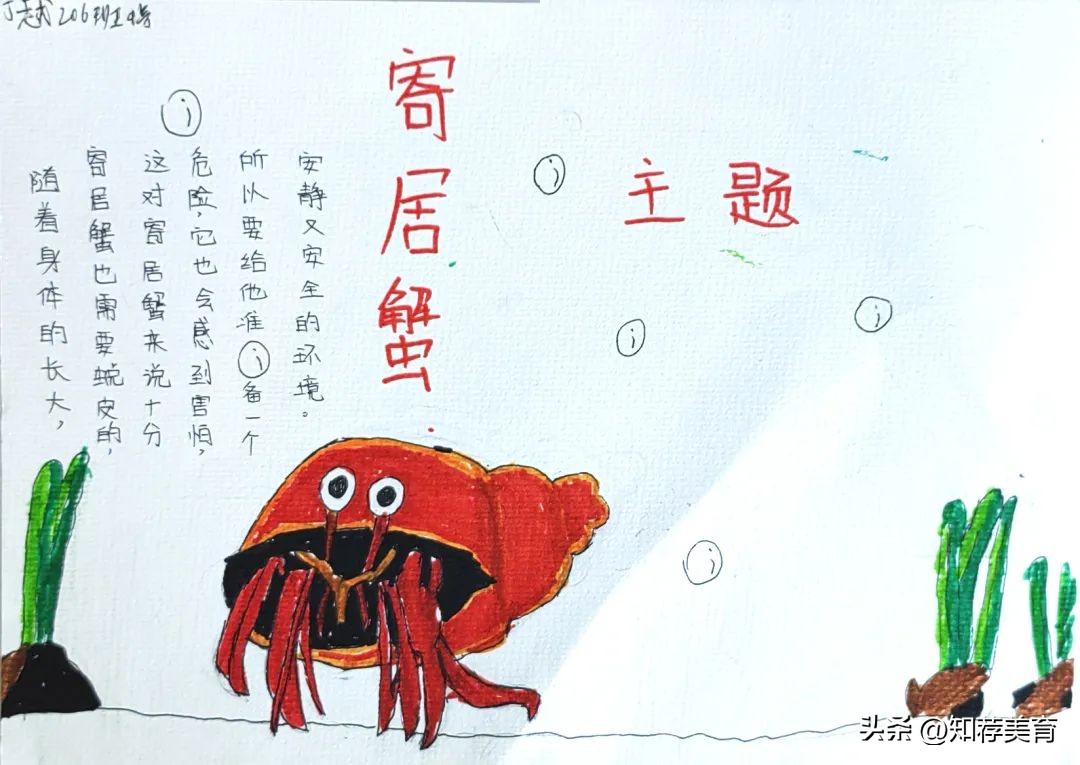 206班
寄居蟹
主题
随着身体的长大，
寄居蟹也需要蜕皮的，
这对寄居蟹来说十分
危险，它也会感到害怕，
所以要给他准备一个
安静又安全的环境。
头条 @知荐美育